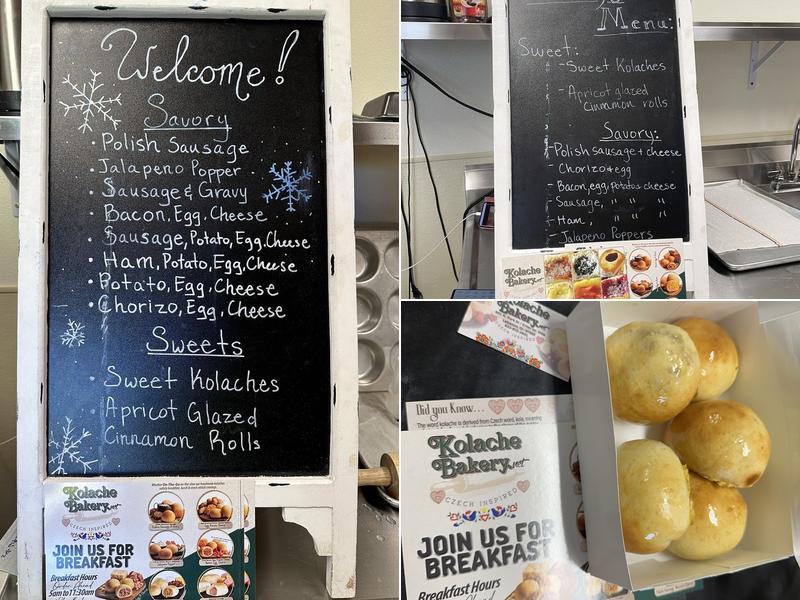 Welcome!
Savory
• Polish Sausage
• Jalapeno Popper
• Sausage & Gravy
• Bacon, Egg, Cheese
• Sausage, Potato, Egg, Cheese
• Ham, Potato, Egg, Cheese
• Potato, Egg, Cheese
• Chorizo, Egg, Cheese
Sweets
• Sweet Kolaches
• Apricot Glazed
Cinnamon Rolls
Kolache
Bakery.net
CZECH INSPIRED
JOIN US FOR
BREAKFAST
Breakfast Hours
5am to 11:30am
Menu:
Sweet:
- Sweet Kolaches
- Apricot glazed
Cinnamon rolls
Savory:
- Polish sausage + cheese
- Chorizo + egg
- Bacon, egg, potatoe cheese
- Sausage, " " "
- Ham, " " "
- Jalapeno Poppers
Kolache
Bakery
Kolache
Bakery.net
Did you Know...
The word kolache is derived from Czech word, kola, meaning
Kolache
Bakery.net
CZECH INSPIRED
JOIN US FOR
BREAKFAST
Breakfast Hours